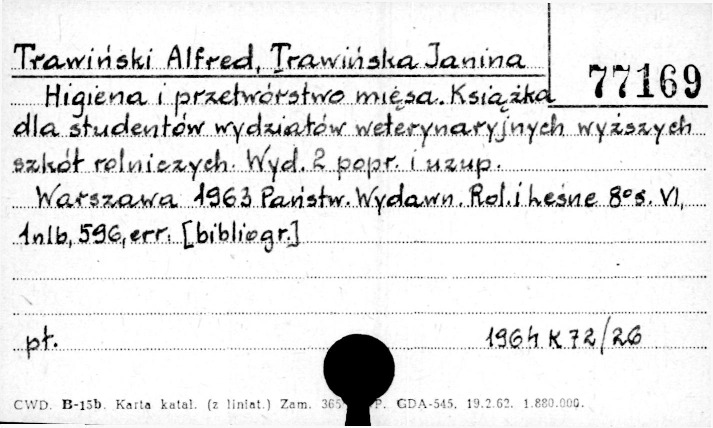 Trawiński Alfred, Trawińska Janina
77169
Higiena i przetwórstwo mięsa. Książka
dla studentów wydziałów weterynaryjnych wyższych
szkół rolniczych. Wyd. 2 popr. i uzup.
Warszawa 1963 Państw. Wydawn. Rol. i Leśne 8° s. VI,
1nlb, 596, err. [bibliogr.]
pt. 1964 K 72/26
CWD. B-15b. Karta katal. (z liniat.) Zam. 365 P. GDA-545. 19.2.62. 1.880.000.